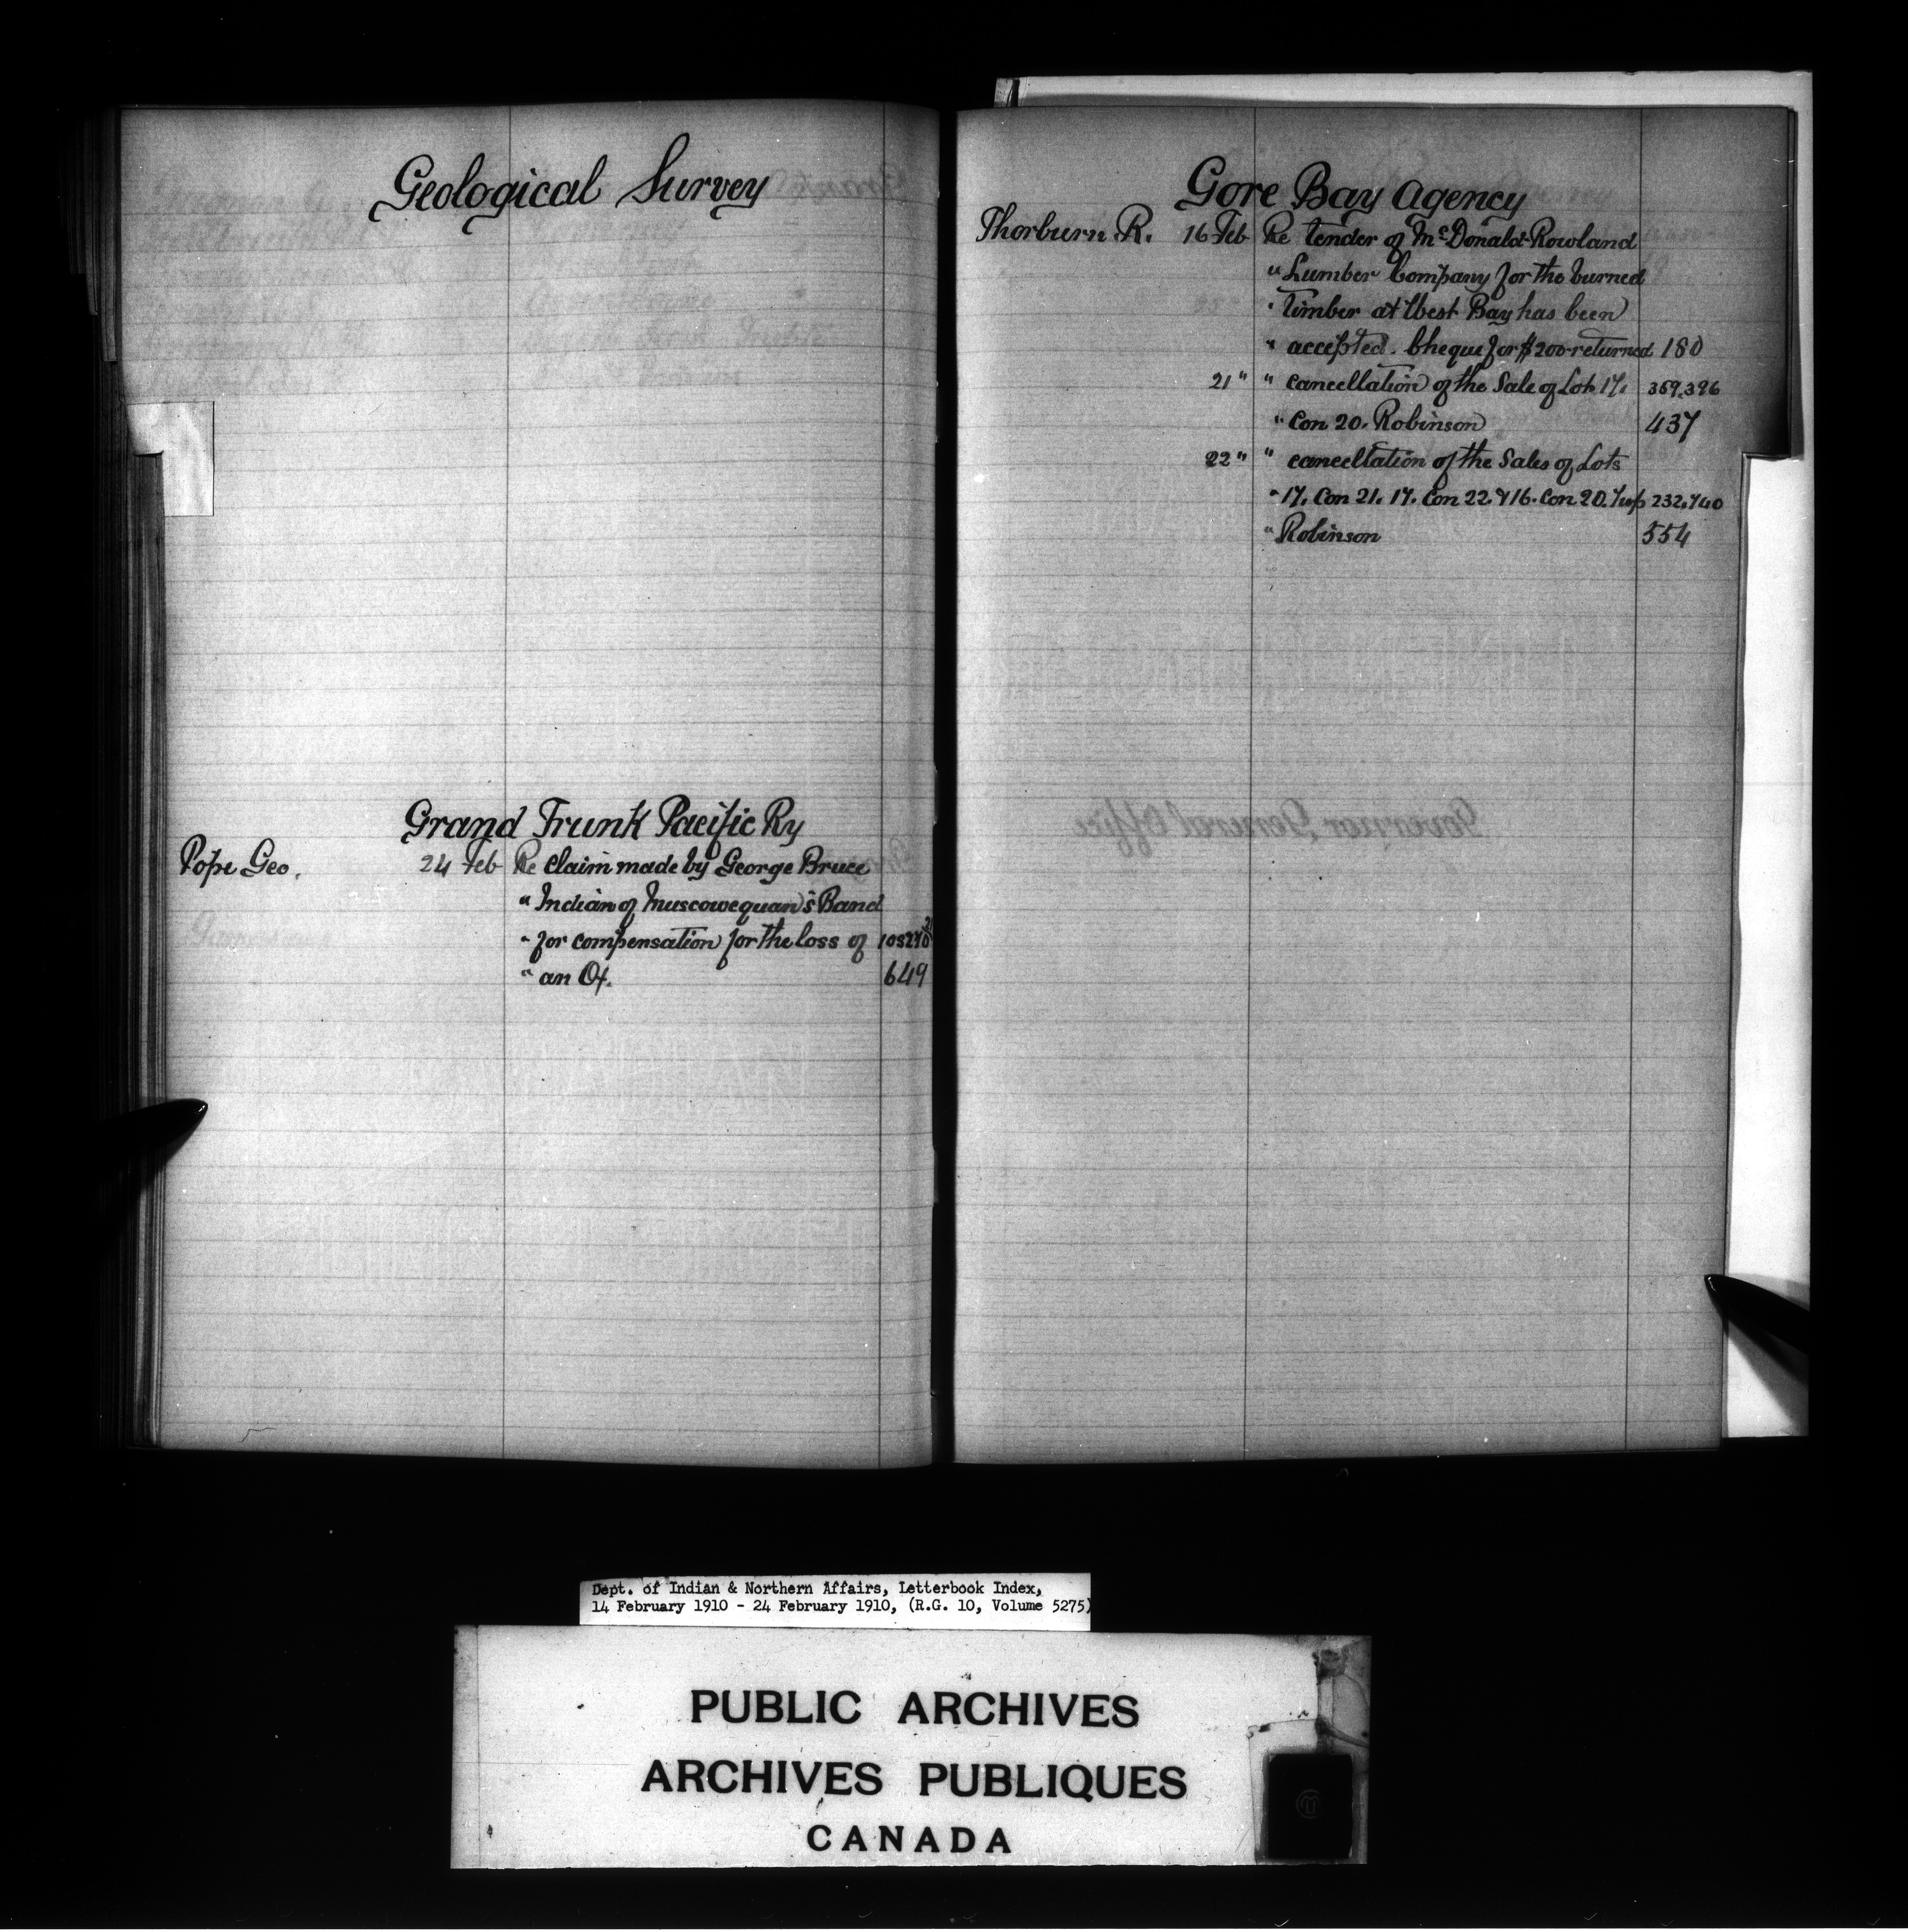 Geological Survey
Grand Trunk Pacific Ry
Pope Geo. 24 Feb Re claim made by George Bruce
" Indian of Muscowequan's Band
" for compensation for the loss of
" an Ox. 649
Gore Bay Agency
Thorburn. R. 16 Feb Re tender of McDonald-Rowland
" Lumber Company for the burned
" timber at West Bay has been
" accepted. Cheque for $200 returned 180
21 " " cancellation of the Sale of Lot 17. 359,396
" Con 20. Robinson 437
22 " " cancellation of the Sales of Lots
" 17. Con 21. 17. Con 22. & 16. Con 20. Twp 232,740
" Robinson 554
Governor General Office
Dept. of Indian & Northern Affairs, Letterbook Index,
14 February 1910 - 24 February 1910, (R.G. 10, Volume 5275)
PUBLIC ARCHIVES
ARCHIVES PUBLIQUES
CANADA